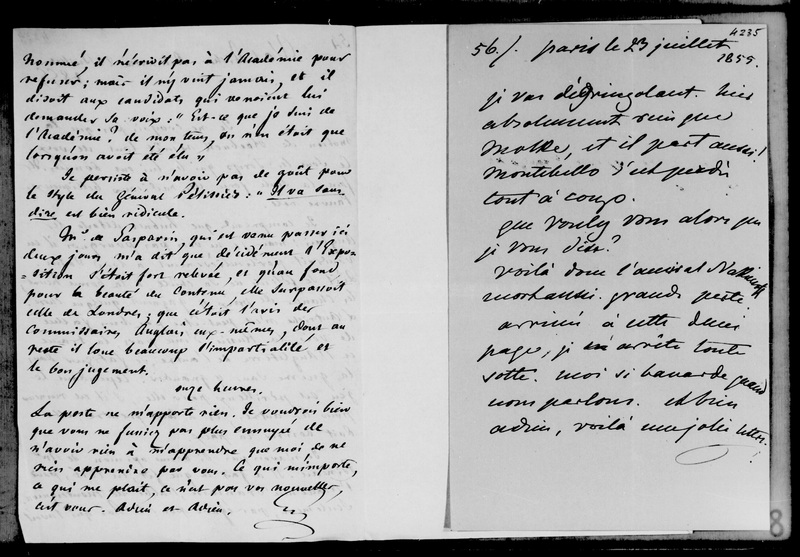 nommé, il n'écrivit pas à l'Académie pour
refuser; mais il n'y vint jamais, et il
disoit aux candidats qui venoient lui
demander sa voix: "Est-ce que je suis de
l'Académie? de mon tems, on n'en étoit que
lorsqu'on avoit été élu"
Je persiste à n'avoir pas de goût pour
le style du Général Pélissier: "Il va sans
dire est bien ridicule.
Mr. de Gasparin, qui est venu passer ici
deux jours m'a dit que décidément l'Expo-
-sition s'étoit fort relevée, et qu'au fond
pour la beauté du contenu, elle surpassoit
celle de Londres; que c'étoit l'avis des
commissaires Anglais eux-mêmes, dont au
reste il loue beaucoup l'impartialité et
le bon jugement.
onze heures.
La poste ne m'apporte rien. Je voudrois bien
que vous ne fussiez pas plus ennuyée de
n'avoir rien à m'apprendre que moi de ne
rien apprendre par vous. Ce qui m'importe,
ce qui me plait, ce n'est pas vos nouvelles,
c'est vous. Adieu et Adieu.
4235
56/. paris le 23 juillet
1855.
je vas dégringolant. hier
absolument rien que
Molke, et il part aussi!
Montebello s'est perdu
tout à coup.
que voulez vous alors que
je vous dise?
voilà donc l'amiral
mort aussi. grande perte
arrivée à cette
page, je m'arrête toute
sotte. moi si bavarde quand
nous parlons. et bien
adieu, voilà une jolie lettre!
8